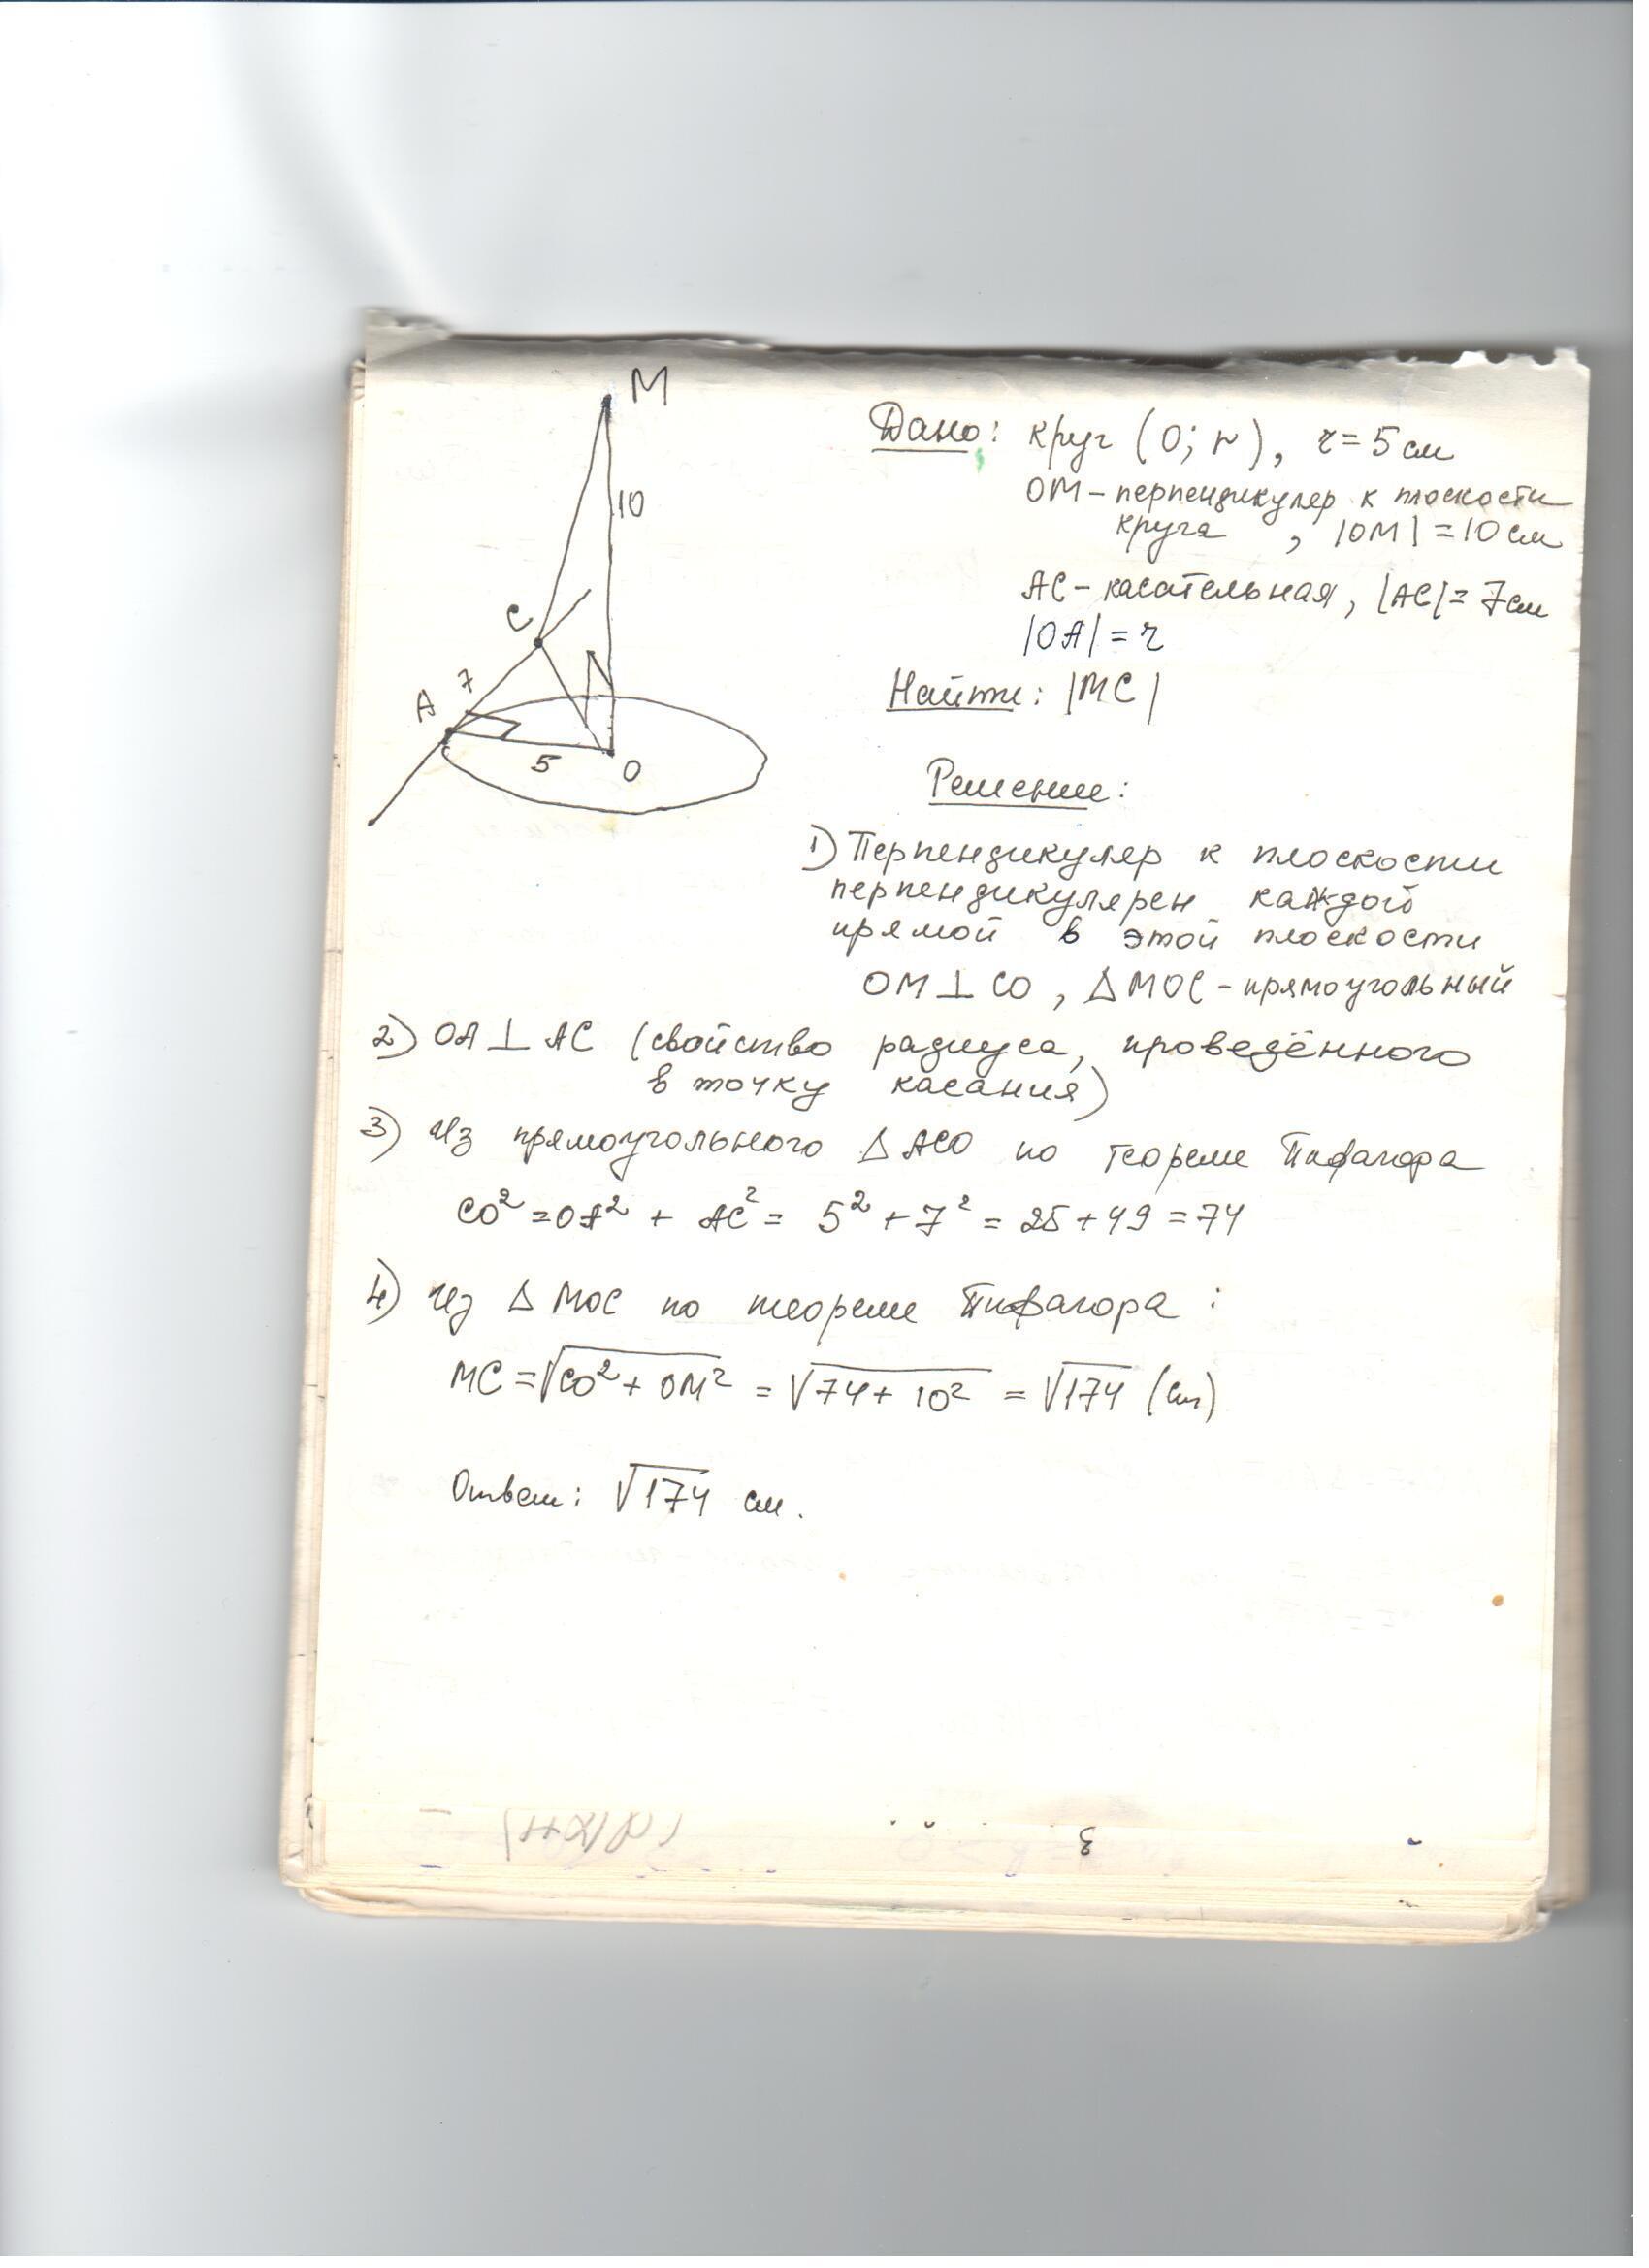 M
10
C
7
A
5
O
Дано: круг (O; r), r = 5 см
OM – перпендикуляр к плоскости
круга , |OM| = 10 см
AC – касательная, |AC| = 7 см
|OA| = r
Найти: |MC|
Решение:
1) Перпендикуляр к плоскости
перпендикулярен каждой
прямой в этой плоскости
OM ⊥ CO , △ MOC – прямоугольный
2) OA ⊥ AC (свойство радиуса, проведённого
в точку касания)
3) Из прямоугольного △ ACO по теореме Пифагора
CO² = OA² + AC² = 5² + 7² = 25 + 49 = 74
4) Из △ MOC по теореме Пифагора :
MC = √CO² + OM² = √74 + 10² = √174 (см)
Ответ: √174 см.